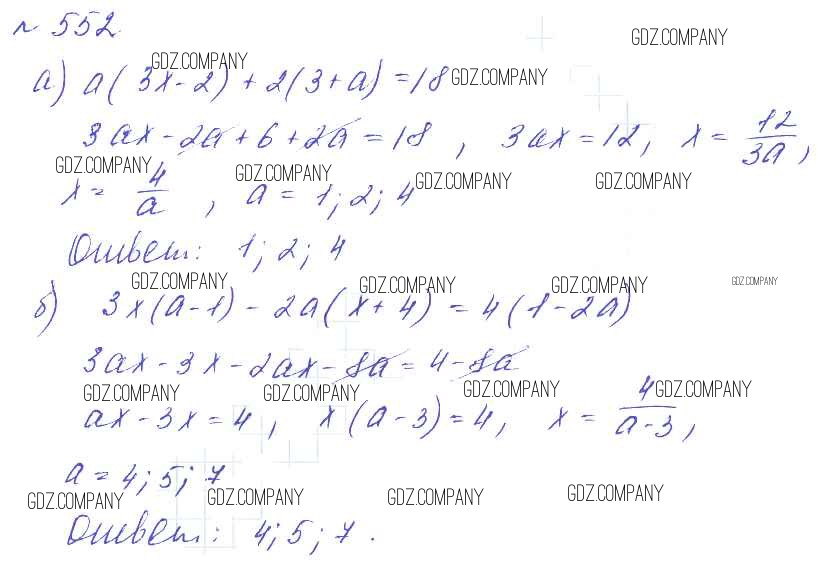 № 552.
GDZ.COMPANY
GDZ.COMPANY GDZ.COMPANY
а) a(3x-2) + 2(3+a) = 18
3ax - 2a + 6 + 2a = 18, 3ax = 12, x = 12/3a,
GDZ.COMPANY GDZ.COMPANY GDZ.COMPANY GDZ.COMPANY
x = 4/a, a = 1; 2; 4
Ответ: 1; 2; 4
GDZ.COMPANY GDZ.COMPANY GDZ.COMPANY GDZ.COMPANY
б) 3x(a-1) - 2a(x+4) = 4(1-2a)
3ax - 3x - 2ax - 8a = 4 - 8a
GDZ.COMPANY GDZ.COMPANY GDZ.COMPANY GDZ.COMPANY
ax - 3x = 4, x(a-3) = 4, x = 4/a-3,
a = 4; 5; 7
GDZ.COMPANY GDZ.COMPANY GDZ.COMPANY GDZ.COMPANY
Ответ: 4; 5; 7.